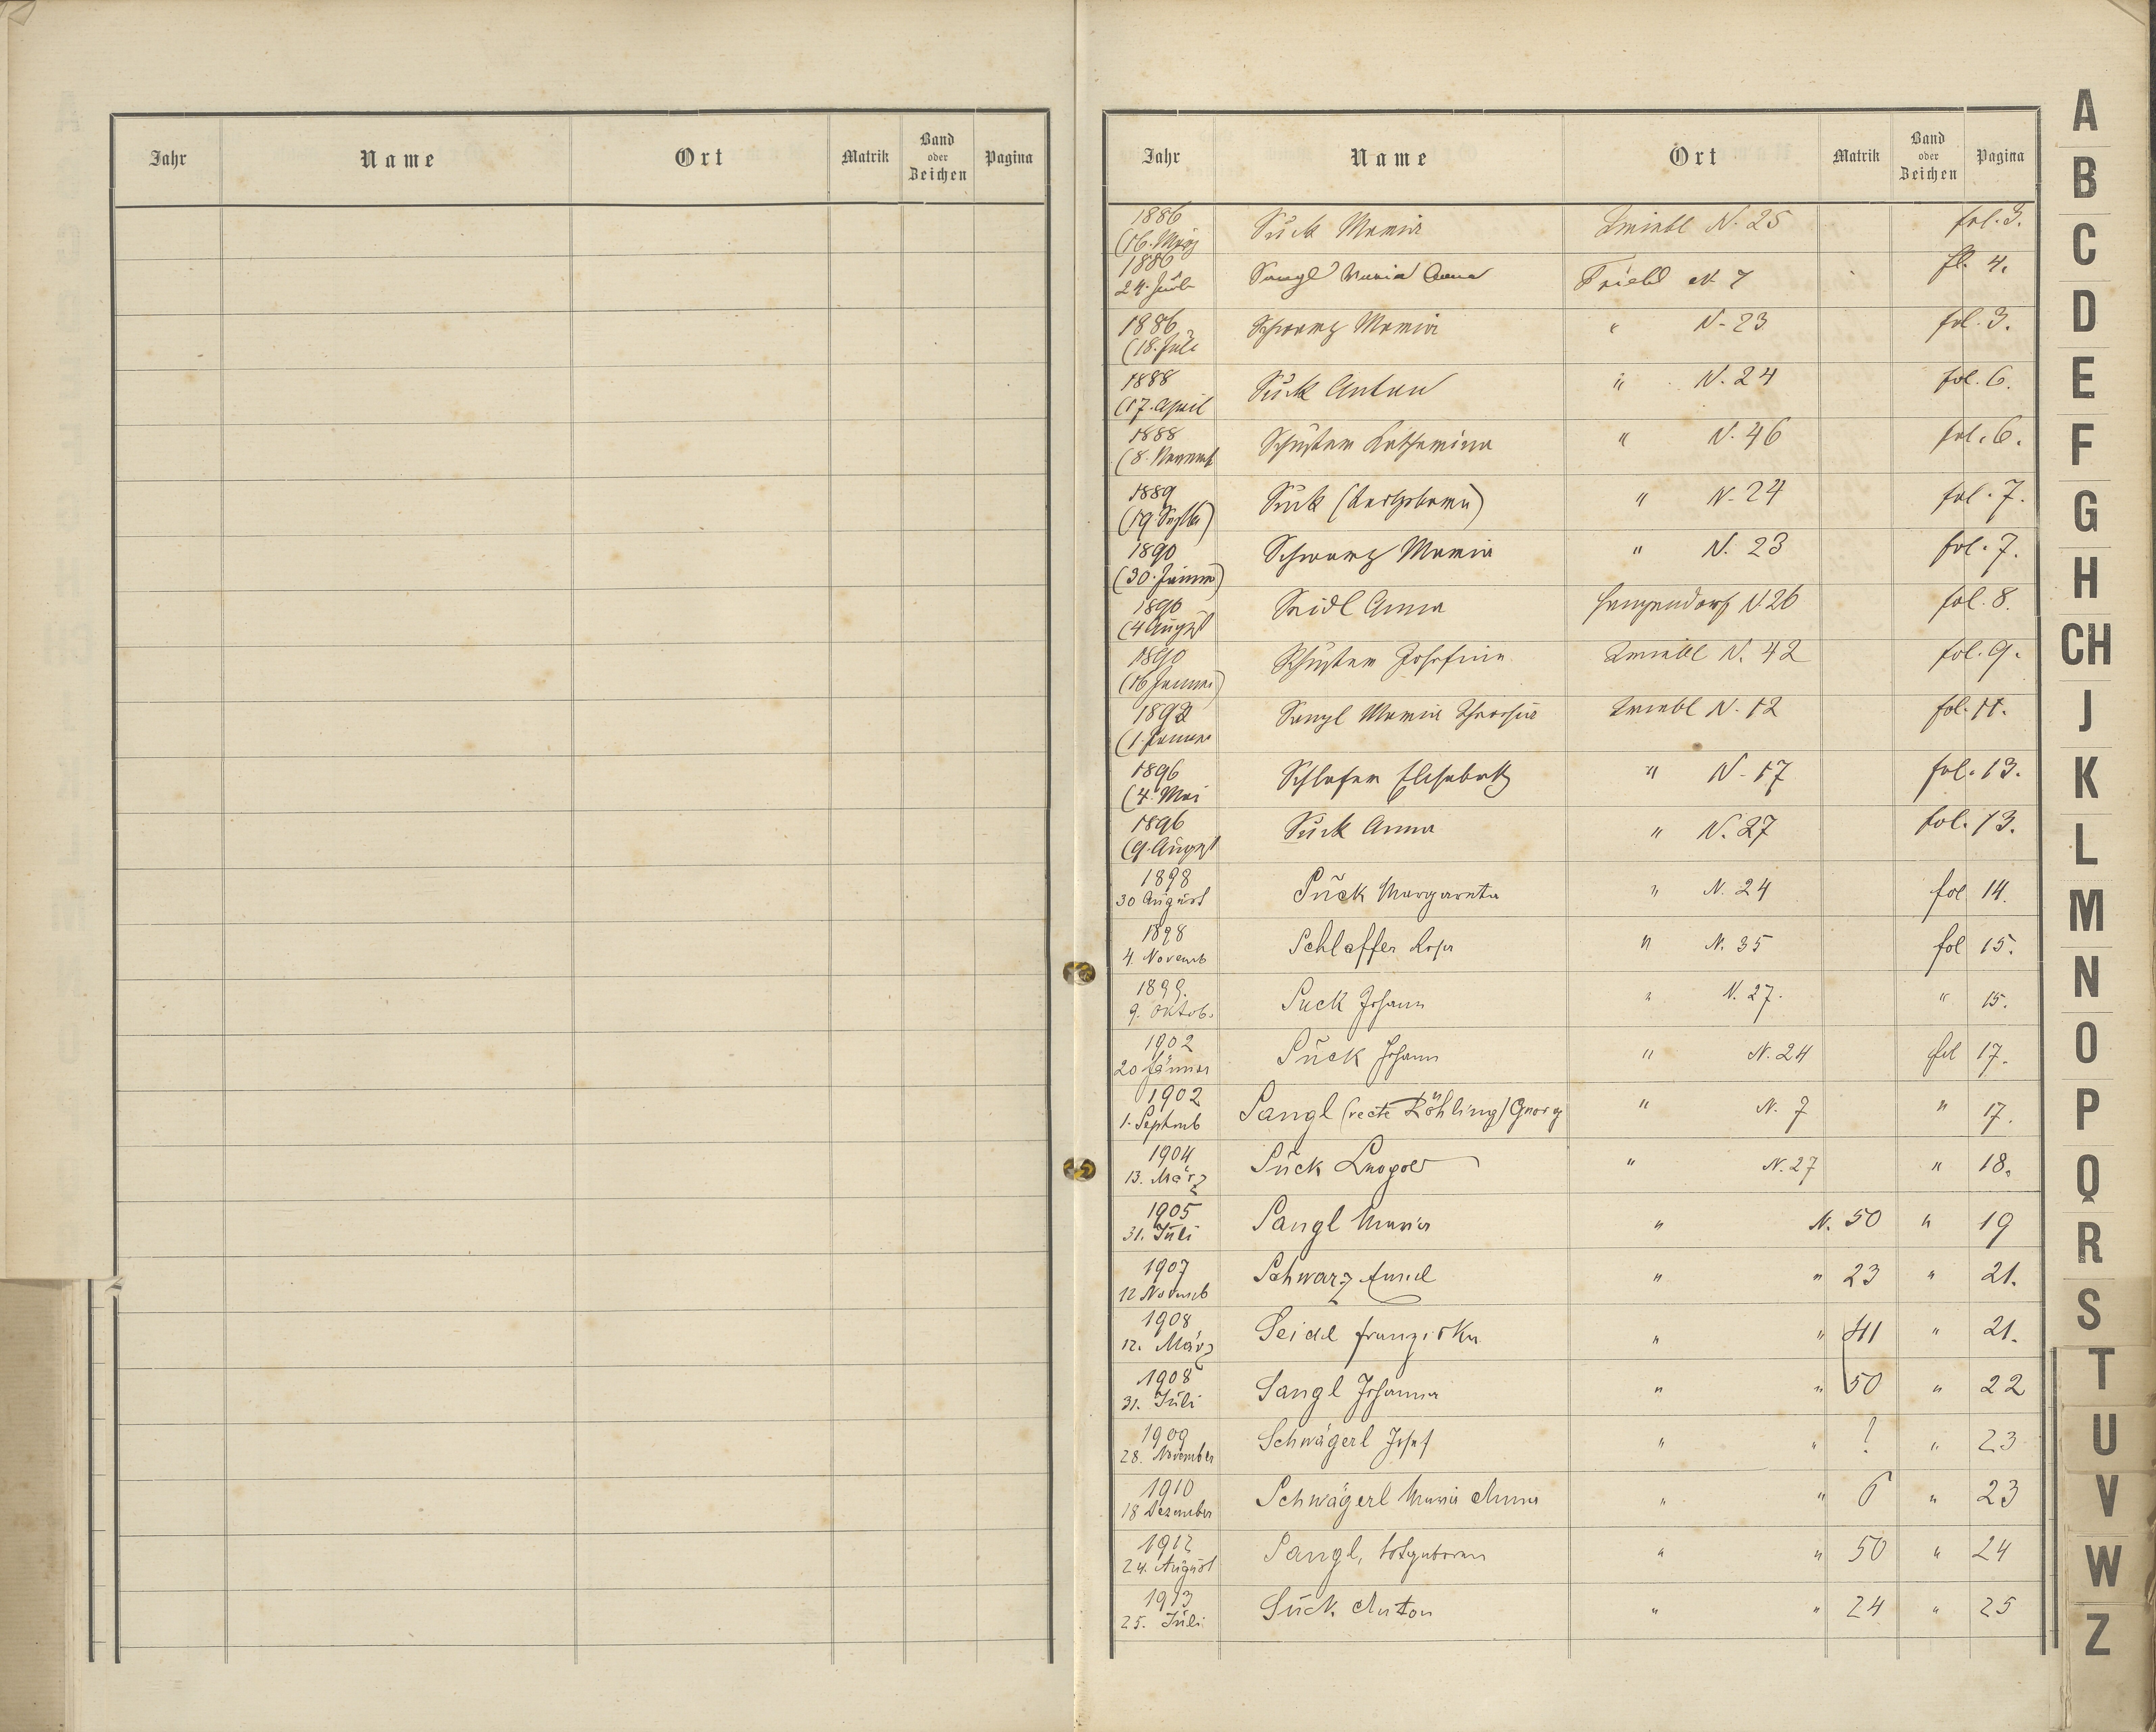 Jahr Name Ort Matrik Band oder Zeichen Pagina
Jahr Name Ort Matrik Band oder Zeichen Pagina
1886 (16. März Suck Maria Triebl N. 25 fol. 3.
1886 24. Sangl Maria Anna Triebl N 7 fl. 4.
1886 (18. Juli Schwarz Maria " N. 23 fol. 3.
1888 (17. April Suck Anton " N. 24 fol. 6.
1888 (8. Novemb Schuster Katharina " N. 46 fol. 6.
1889 (19 Septb) Suck (todtgeboren) " N. 24 fol. 7.
1890 (30. Jänner) Schwarz Maria " N. 23 fol. 7.
1890 (4 August Seidl Anna N. 26 fol. 8.
1890 (16 Schuster Josefine Triebl N. 42 fol. 9.
1892 (1. Sangl Maria Theresia Triebl N. 12 fol. 11.
1896 (4. Mai Schlafer Elisabeth " N. 17 fol. 13.
1896 (9. August Suck Anna " N. 27 fol. 13.
1898 30 August Suck Margareta " N. 24 fol 14.
1898 4. Novemb Schlaffer Rosa " N. 35 fol 15.
1899. 9. Oktob. Suck Johann " N. 27. " 15.
1902 20 Jänner Suck Johann " N. 24 fol 17.
1902 1. Septemb Sangl (recte Röhling) Georg " N. 7 " 17.
1904 13. März Suck Leopold " N. 27 " 18.
1905 31. Juli Sangl Maria " N. 50 " 19
1907 12 Novemb Schwarz " " 23 " 21.
1908 12. März Seidl Franziska " " 41 " 21.
1908 31. Juli Sangl Johanna " " 50 " 22
1909 28. November Schwägerl Josef " " ? " 23
1910 18 Dezember Schwägerl Maria Anna " " 6 " 23
1912 24. August Sangl, totgeboren " " 50 " 24
1913 25. Juli Suck Anton " " 24 " 25
A
B
C
D
E
F
G
H
CH
J
K
L
M
N
O
P
Q
R
S
T
U
V
W
Z